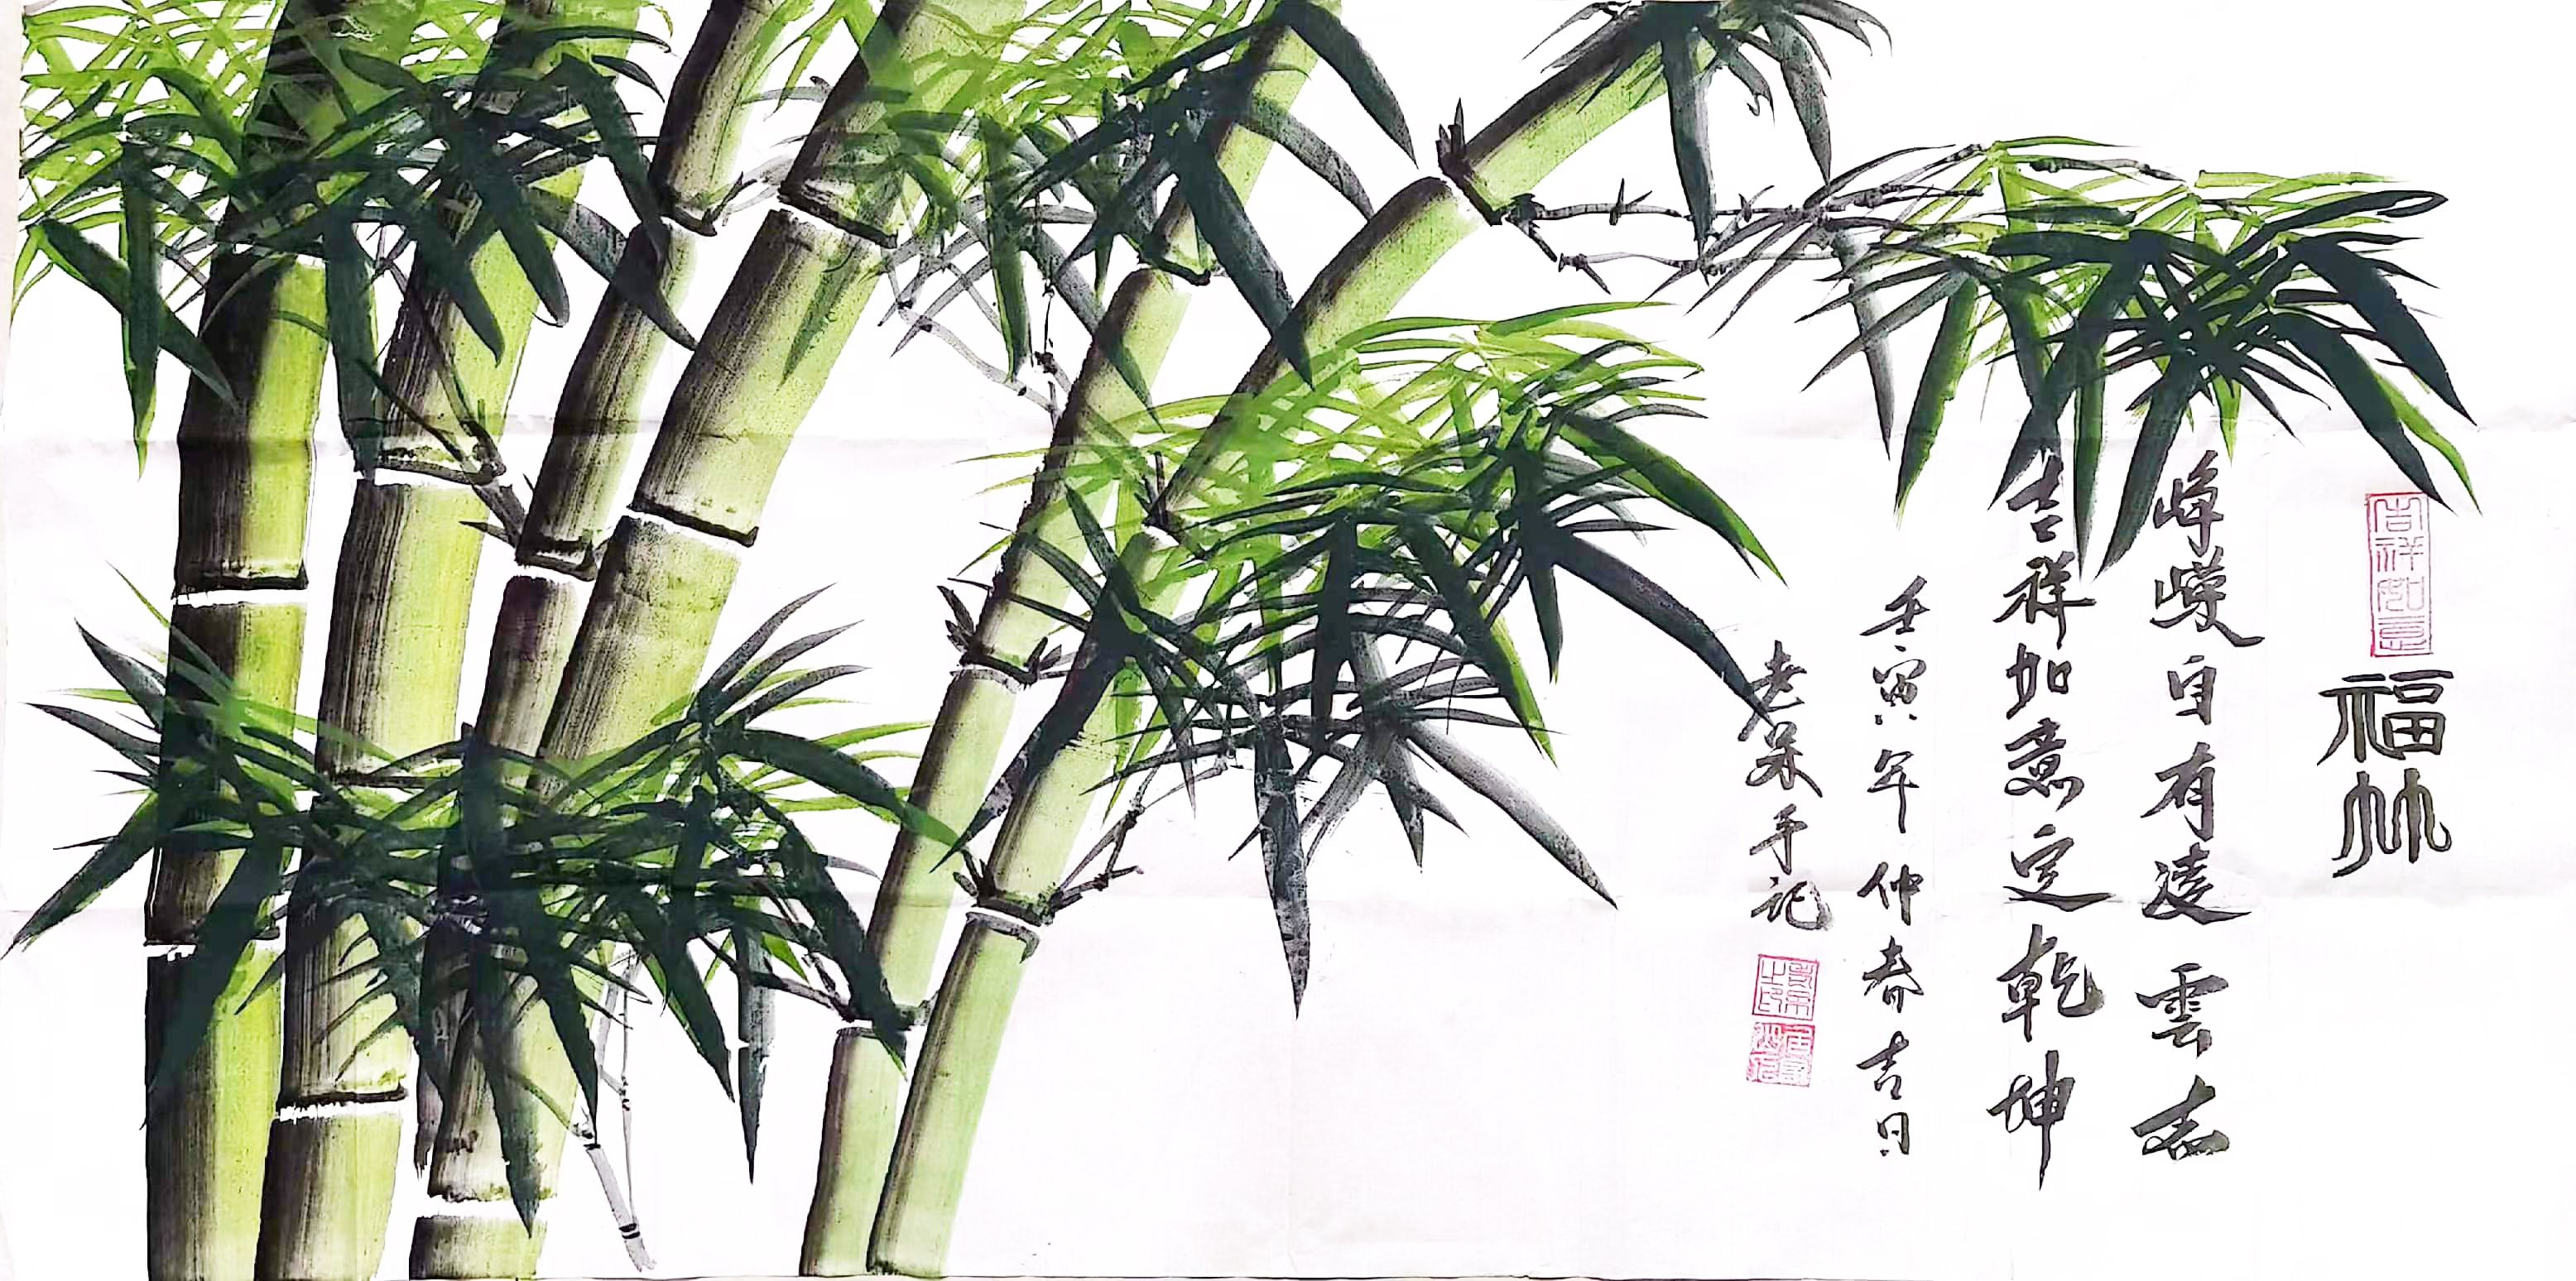 福竹
峥嵘自有凌雲志
吉祥如意定乾坤
壬寅年仲春吉日
老呆手记